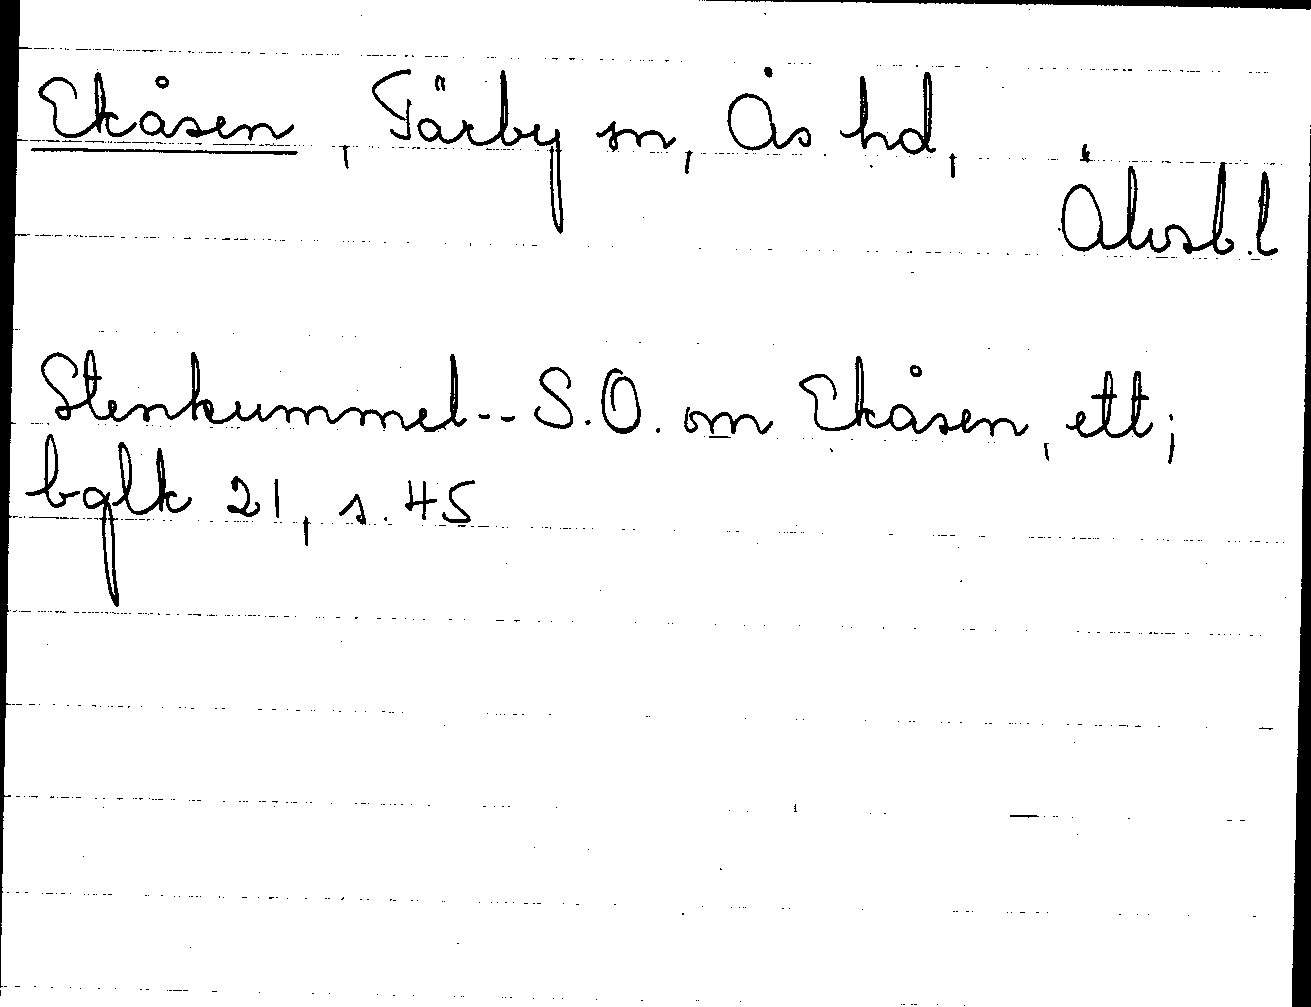 Ekåsen, Tärby sn, Ås hd,
Älvsb.l
Stenkummel-- S.O. om Ekåsen, ett;
bglk 21, s. 45